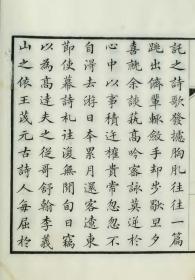 託之詩歌發攄胸肊往往一篇
跳出儕輩輒斂手却步歇旦夕
喜就余談蓺高吟客詠莫逆於
心中以事積迕權貴怱怱不
自得去游日本累月還客遼東
節使幕詩札往復無閒旬日竊
以為高達夫之從哥舒翰李義
山之依王茂元古詩人每屈於